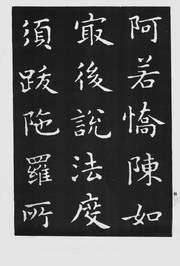 阿若憍陳如
㝡後說法度
須跋陁羅所